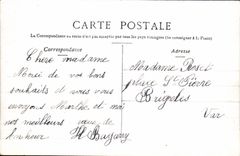 CARTE POSTALE
La Correspondance au recto n'est pas acceptée par tous les pays étrangers (Se renseigner à la Poste)
Correspondance
Adresse
Chère madame
Merci de vos bons
souhaits et nous vous
envoyons Marthe et moi
nos meilleurs vœux de
bonheur
Madame
place St Pierre
Var